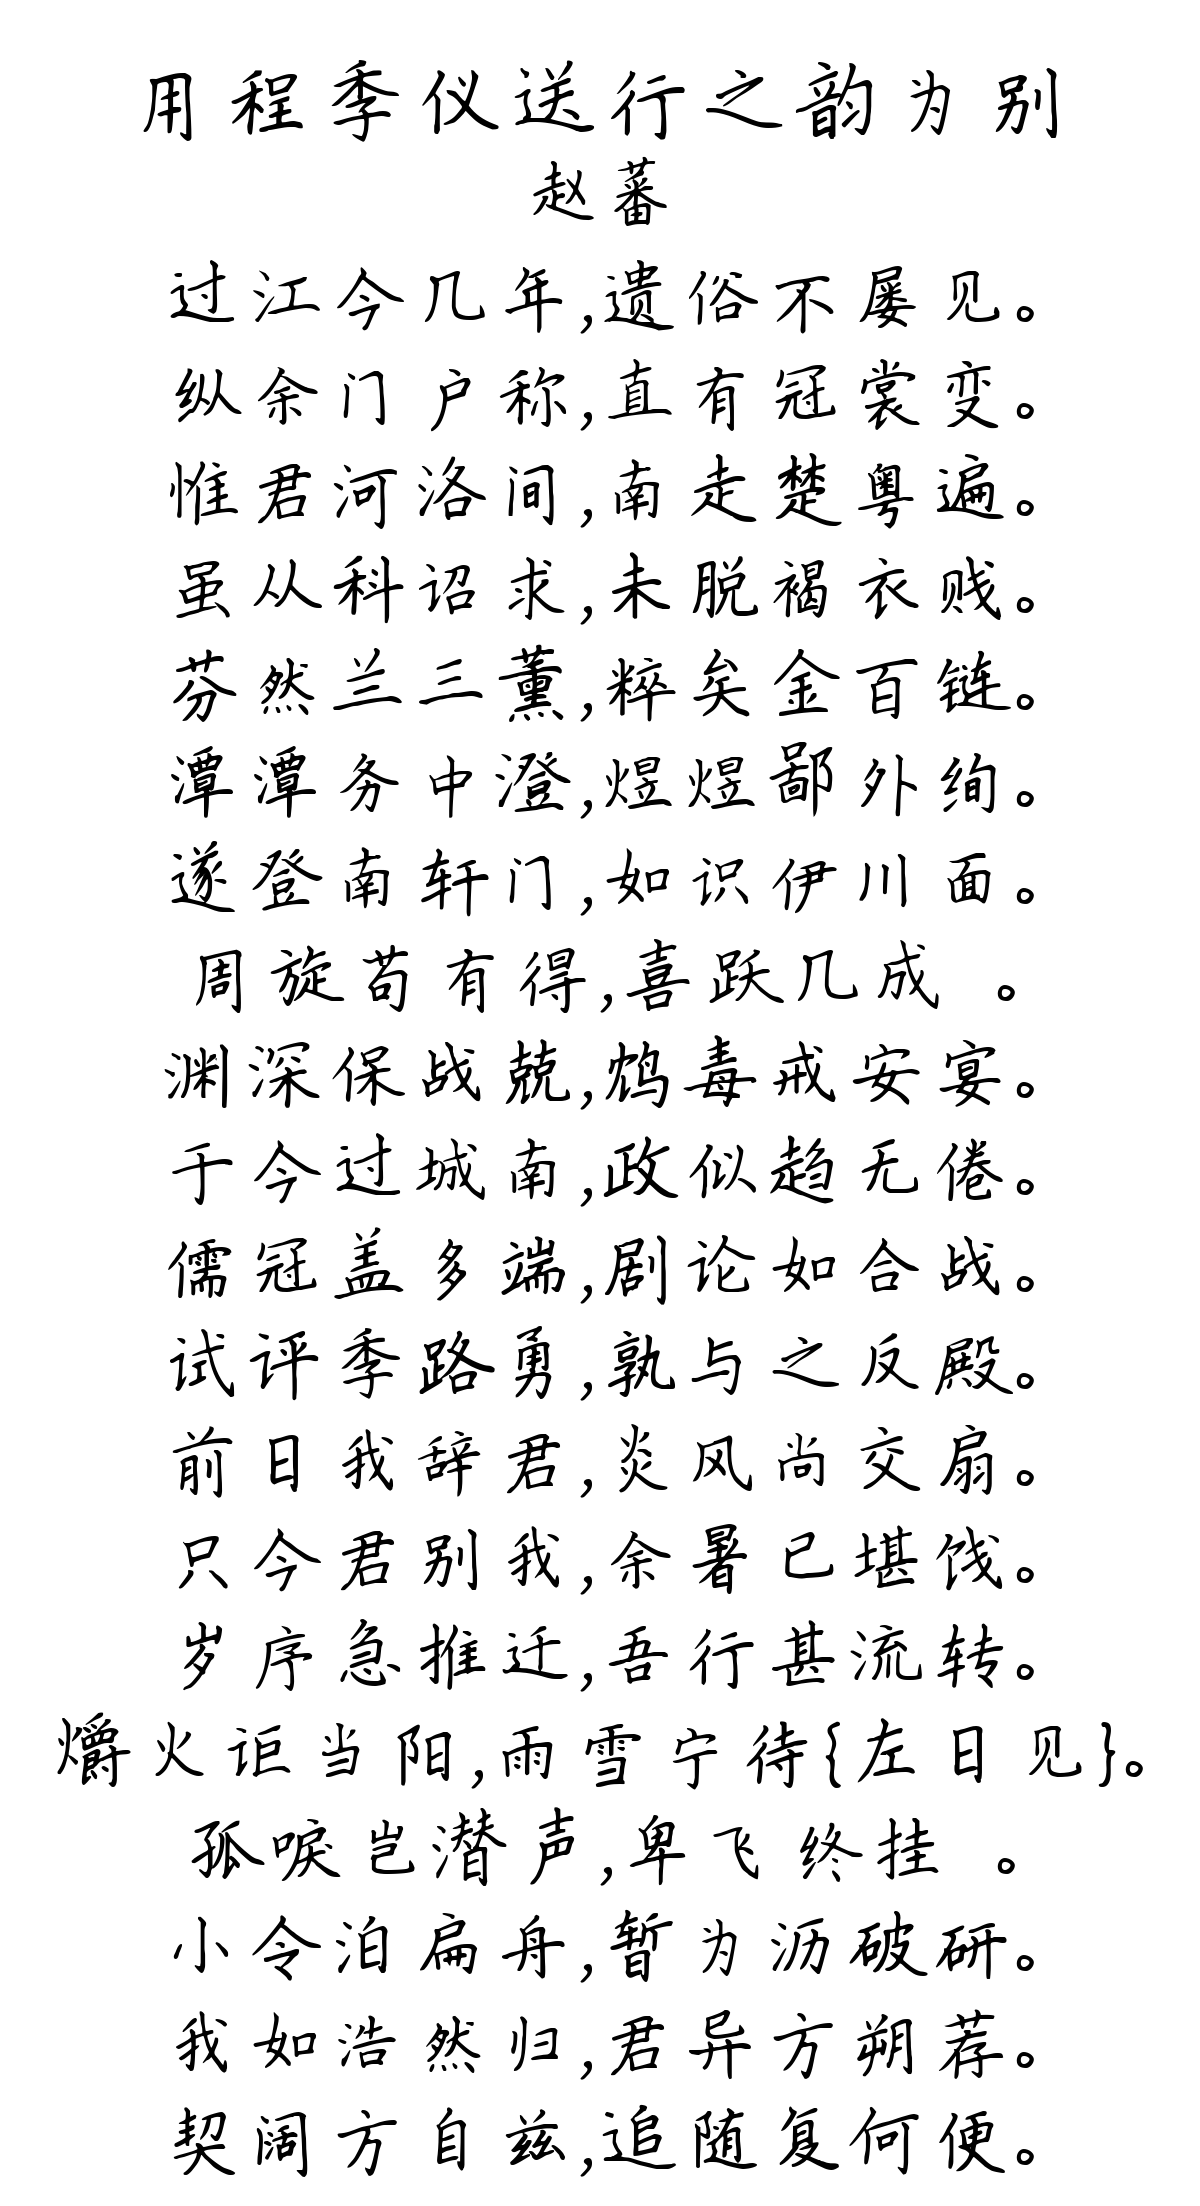 用程季仪送行之韵为别
赵蕃
过江今几年,遗俗不屡见。
纵余门户称,直有冠裳变。
惟君河洛间,南走楚粤遍。
虽从科诏求,未脱褐衣贱。
芬然兰三薰,粹矣金百链。
潭潭务中澄,煜煜鄙外绚。
遂登南轩门,如识伊川面。
周旋苟有得,喜跃几成 。
渊深保战兢,鸩毒戒安宴。
于今过城南,政似趋无倦。
儒冠盖多端,剧论如合战。
试评季路勇,孰与之反殿。
前日我辞君,炎风尚交扇。
只今君别我,余暑已堪饯。
岁序急推迁,吾行甚流转。
爝火讵当阳,雨雪宁待{左日见}。
孤唳岂潜声,卑飞终挂 。
小令泊扁舟,暂为沥破研。
我如浩然归,君异方朔荐。
契阔方自兹,追随复何便。